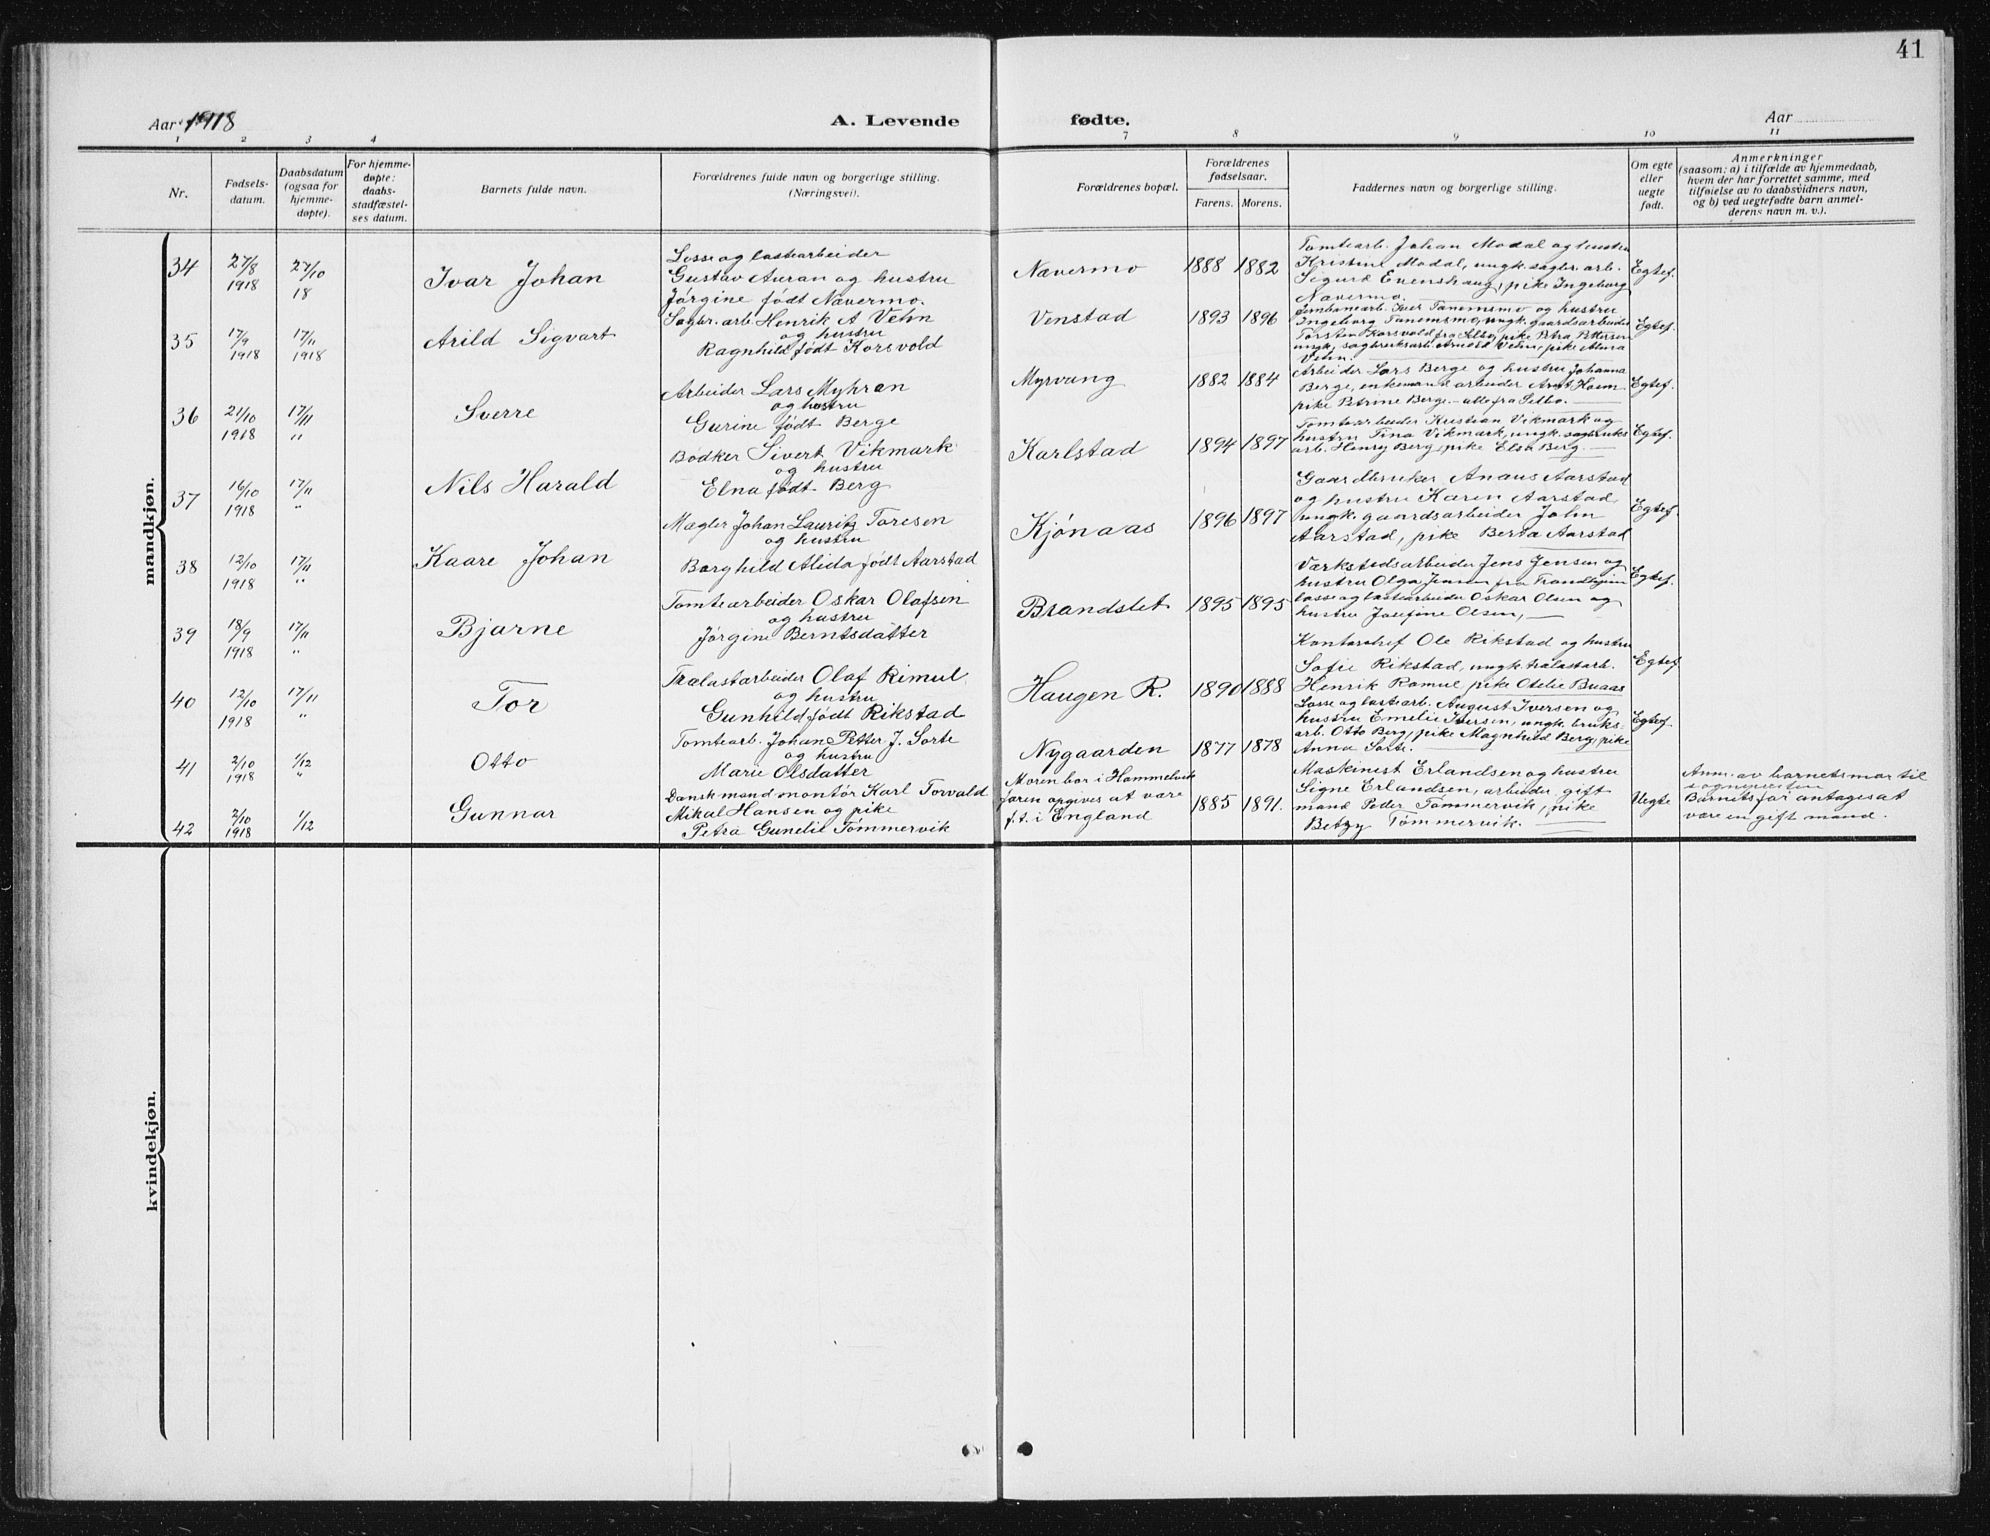 41
Aar 1918
A. Levende
fødte.
Aar
1 2 3 4
7 8 9 10 11
Nr.
Fødsels-
datum.
Daabsdatum
(ogsaa for
hjemme-
døpte).
For hjemme-
døpte:
daabs-
stadfæstel-
ses datum.
Barnets fulde navn.
Forældrenes fulde navn og borgerlige stilling.
(Næringsvei).
Forældrenes bopæl.
Forældrenes
fødselsaar.
Farens. Morens.
Faddernes navn og borgerlige stilling.
Om egte
eller
uegte
født.
Anmerkninger
(saasom: a) i tilfælde av hjemmedaab,
hvem der har forrettet samme, med
tilføielse av to daabsvidners navn,
og b) ved uegtefødte barn anmel-
derens navn m. v.).
mandkjøn.
34
27/8
1918
27/10
18
Ivar Johan
Losse og lastearbeider
Gustav Auran og hustru
Jørgine født Nævermo.
Nævermo
1888 1882
Tomtearb. Johan Modal og hustru
Kristine Modal, ungk. sagbr. arb.
Sigurd Evenshaug, pike Ingeborg
Nævermo.
Egtef.
35
17/9
1918
17/11
1918
Arild Sigvart
Sagbr. arb. Henrik A Vehn
og hustru
Ragnhild født Korsvold
Venstad
1893 1896
Jernbanearb. Iver Tanemsmo og hustru
Ingeborg Tanemsmo, ungk. gaardsarbeider
Torsten Korsvold fra Selbu, pike Petra Pettersen
ungk. sagbruksarb. Arnold Vehn, pike Alma
Vehn.
Egtef.
36
21/10
1918
17/11
"
Sverre
Arbeider Lars Myhran
og hustru
Gurine født Berge
Myrvang
1882 1884
Arbeider Lars Berge og hustru Johanna
Berge, enkemand arbeider Arnt Hoem
pike Petrine Berge - alle fra Selbo.
Egtef.
37
16/10
1918
17/11
"
Nils Harald
Bødker Sivert Vikmark
og hustru
Elna født Berg
Karlstad
1894 1897
Tomtearbeider Kristian Vikmark og
hustru Tina Vikmark, ungk. sagbruks
arb. Henry Berg, pike Elsa Berg. —
Egtef.
38
12/10
1918
17/11
"
Kaare Johan
Mægler Johan Lauritz Toresen
og hustru
Borghild Alida født Aarstad
Kjønaas
1896 1897
Gaardbruker Anaus Aarstad
og hustru Karen Aarstad,
ungk. gaardsarbeider John
Aarstad, pike Berta Aarstad
Egtef.
39
18/9
1918
17/11
"
Bjarne
Tomtearbeider Oskar Olafsen
og hustru
Jørgine Berntsdatter
Brandslet
1895 1895
Værkstedsarbeider Jens Jensen og
hustru Olga Jensen fra Trondhjem
losse og lastearbeider Oskar Olsen og
hustru Josefine Olsen, —
Egtef.
40
12/10
1918
17/11
"
Tor
Trælastarbeider Olaf Rimul
og hustru
Gunhild født Rikstad
Haugen R.
1890 1888
Kontorchef Ole Rikstad og hustru
Sofie Rikstad, ungk. trælastarb.
Henrik Ramul pike Otelie Buaas
Egtef.
41
2/10
1918
1/12
"
Otto
Tomtearb. Johan Petter J. Sorte
og hustru
Marie Olsdatter
Nygaarden
1877 1878
Losse og lastearb. August Iversen og
hustru Emelie Iversen, ungk. bruks.
arb. Otto Berg, pike Magnhild Berg, pike
Anna Sorte.
Egtef.
42
2/10
1918
1/12
Gunnar
Dansk mand montør Karl Torvald
Mikal Hansen og pike
Petra Gunelie Tømmervik
Moren bor i Hommelvik
faren opgives at være
f.t. i England
1885 1891.
Maskinist Erlandsen og hustru
Signe Erlandsen, arbeider gift
mand Peder Tømmervik, pike
Betzy Tømmervik.
Uegte
Anm. av barnets mor til
sognepresten
Barnets far antages at
være en gift mand.
kvindekjøn.